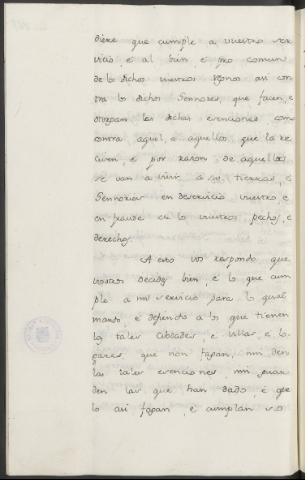 diere que cumple a vuestro ser
vicio, é al bien é pro comun
de los dichos vuestros regnos asi con
tra los dichos Sennores, que facen, é
otorgan las dichas esenciones como
contra aquel, o aquellos que la re
civen, é por razon de aquellos
se van a vivir á sus tierras, é
Sennorios en deservicio vuestro é
en fraude de los vuestros pechos, é
derechos.
A esto vos respondo que
vosotros decides bien, é lo que cum
ple a mi servicio para lo qual
mando, é defiendo a los que tienen
las tales cibdades, e villas é lo
gares, que non fagan, nin den
las tales esenciones nin guar
den las que han dado, é que
lo asi fagan, é cumplan so